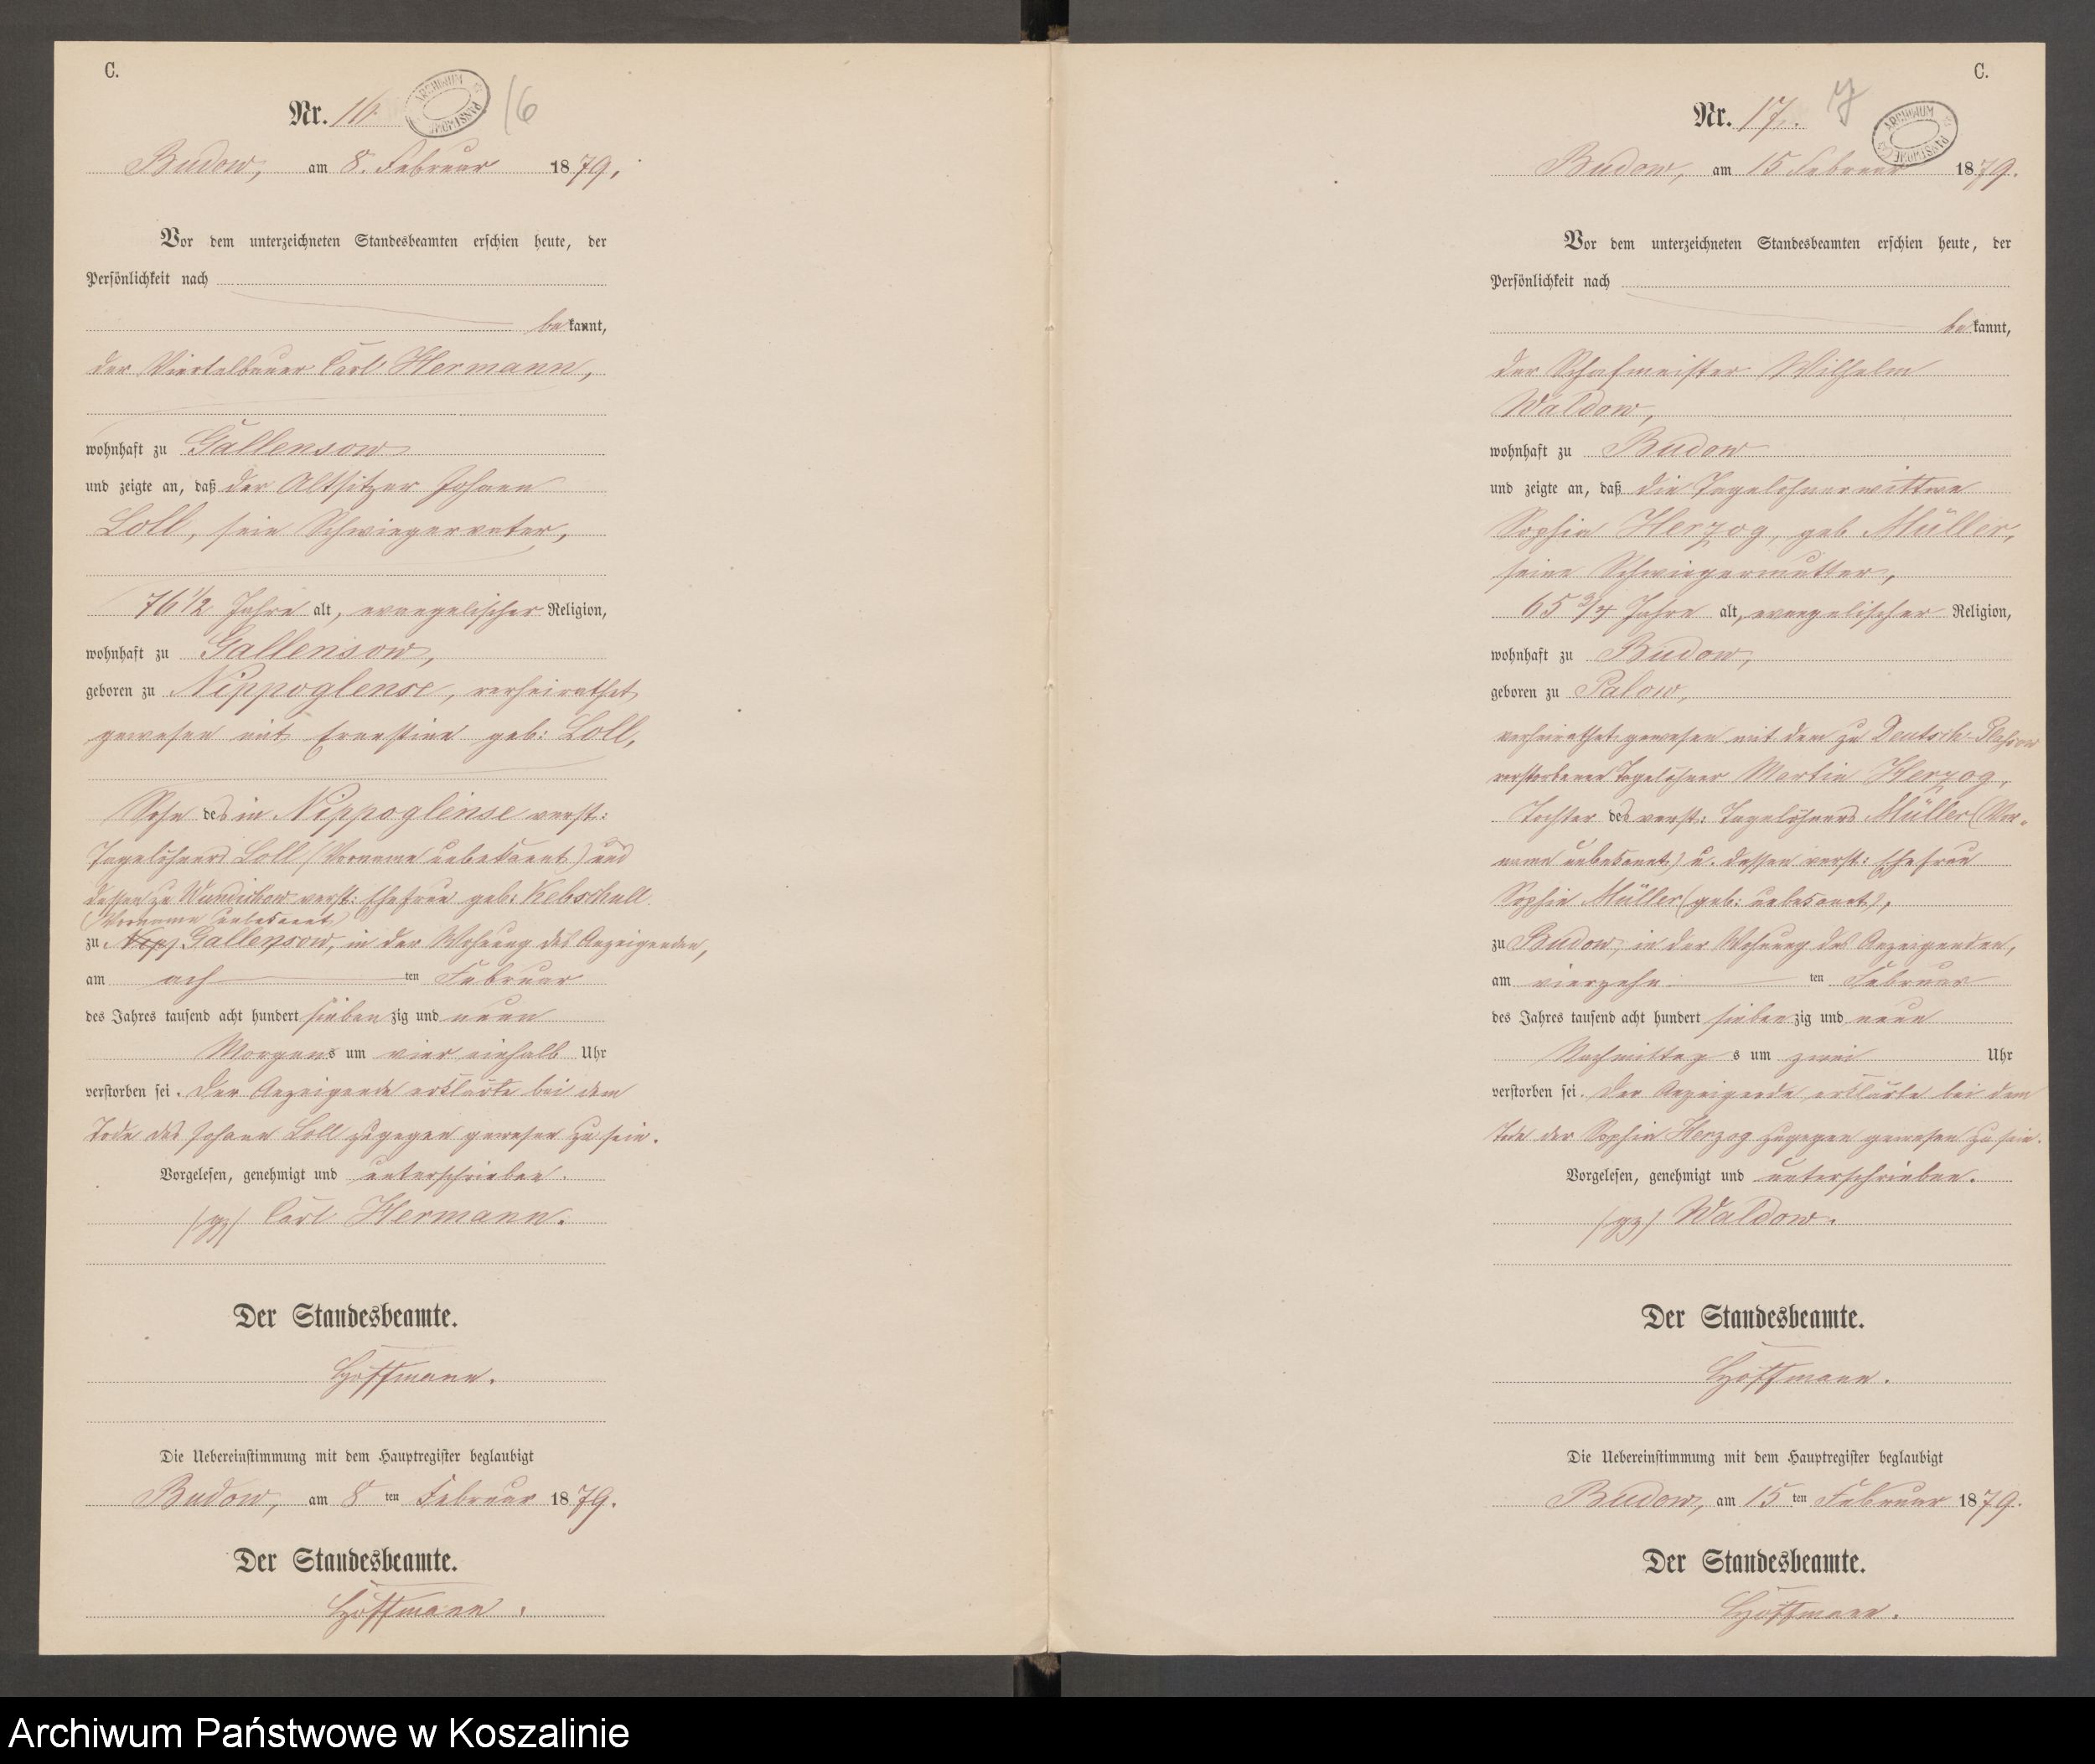 C.
Nr. 16.
16
ARCHIWUM PAŃSTWOWE
Budow, am 8. Februar 1879.
Vor dem unterzeichneten Standesbeamten erschien heute, der
Persönlichkeit nach
bekannt,
der Viertelbauer Carl Hermann,
wohnhaft zu Gallensow
und zeigte an, daß der Altsitzer Johann
Loll, sein Schwiegervater,
76 1/2 Jahre alt, evangelischer Religion,
wohnhaft zu Gallensow,
geboren zu Nippoglense, verheirathet
gewesen mit Ernestine geb: Loll,
Sohn des in Nippoglense verst:
Tagelöhners Loll (Vorname unbekannt) und
dessen zu Wundichow verst: Ehefrau geb: Kebschull
(Vorname unbekannt)
zu Nipp Gallensow, in der Wohnung des Anzeigenden,
am ach ten Februar
des Jahres tausend acht hundert siebenzig und neun
Morgens um vier einhalb Uhr
verstorben sei. Der Anzeigende erklärte bei dem
Tode des Johann Loll zugegen gewesen zu sein.
Vorgelesen, genehmigt und unterschrieben.
(gz) Carl Hermann.
Der Standesbeamte.
Hoffmann.
Die Uebereinstimmung mit dem Hauptregister beglaubigt
Budow, am 8 ten Februar 1879.
Der Standesbeamte.
Hoffmann.
C.
Nr. 17.
ARCHIWUM PAŃSTWOWE
Budow, am 15 Februar 1879.
Vor dem unterzeichneten Standesbeamten erschien heute, der
Persönlichkeit nach
bekannt,
der Schafmeister Wilhelm
Waldow,
wohnhaft zu Budow
und zeigte an, daß die Tagelöhnerwittwe
Sophia Herzog, geb Müller,
seine Schwiegermutter,
65 3/4 Jahre alt, evangelischer Religion,
wohnhaft zu Budow,
geboren zu Palow,
verheirathet gewesen mit dem zu Deutsch
verstorbenen Tagelöhner Martin Herzog,
Tochter des verst: Tagelöhners Müller (Vor-
name unbekannt) u. dessen verst: Ehefrau
Sophie Müller (geb: unbekannt),
zu Budow, in der Wohnung des Anzeigenden,
am vierzehn ten Februar
des Jahres tausend acht hundert siebenzig und neun
Nachmittags um zwei Uhr
verstorben sei. Der Anzeigende erklärte bei dem
Tode der Sophia Herzog zugegen gewesen zu sein.
Vorgelesen, genehmigt und unterschrieben.
(gz) Waldow.
Der Standesbeamte.
Hoffmann.
Die Uebereinstimmung mit dem Hauptregister beglaubigt
Budow, am 15 ten Februar 1879.
Der Standesbeamte.
Hoffmann.
Archiwum Państwowe w Koszalinie